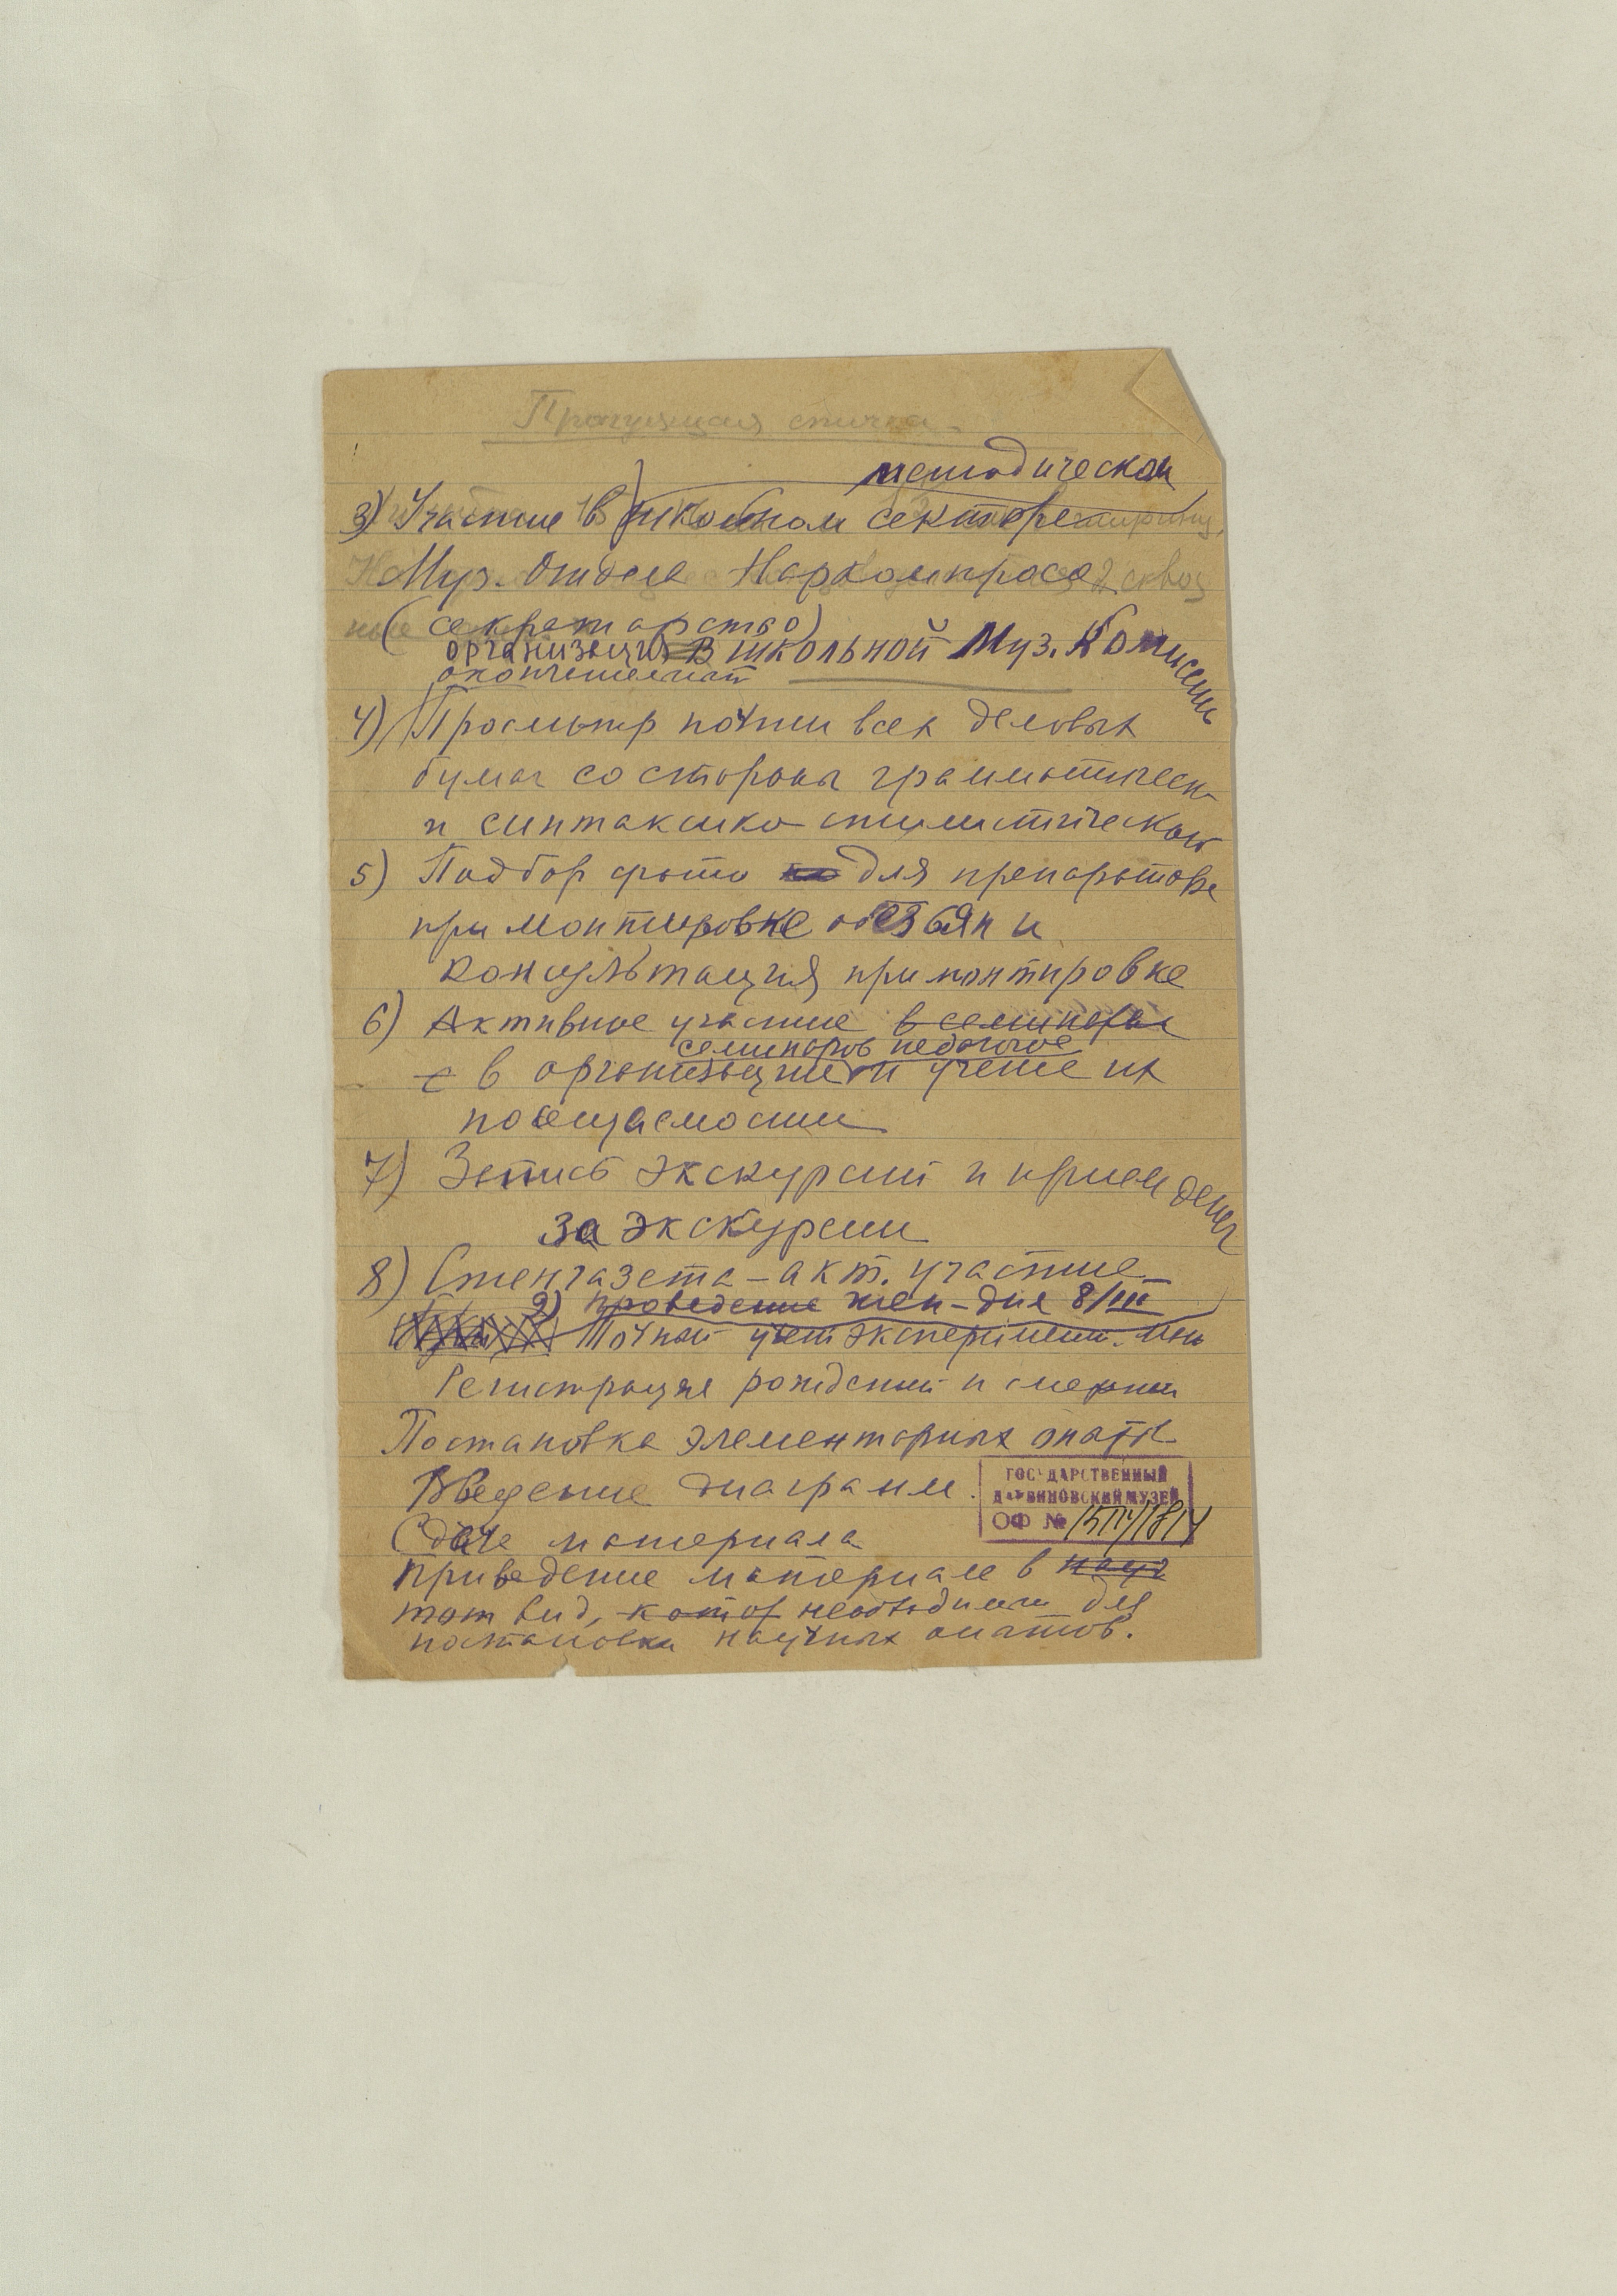 методическом
3) Участие в школьном секторе
Муз. Отдела Наркомпроса
(секретарство)
организация в школьной Муз. Комиссии
4) Просмотр почти всех деловых
бумаг со стороны грамматическ.
и синтаксико стилистической
5) Подбор фото для препаратора
при монтировке обезьян и
консультация при монтировке
6) Активное участие в семинарах
семинаров педагогов
в организации и учете их
посещаемости
7) Запись экскурсий и прием денег
за экскурсии
8) Стенгазета – акт. участие
9) проведение жен-дня 8/III
Точный учет эксперимент.
Регистрация рождений и смертей
Постановка элементарных опытов
Введение диаграмм
Сдача материала
Приведение материала в
тот вид, котор необходим для
постановки научных опытов.
ГОСУДАРСТВЕННЫЙ
ДАРВИНОВСКИЙ МУЗЕЙ
ОФ №